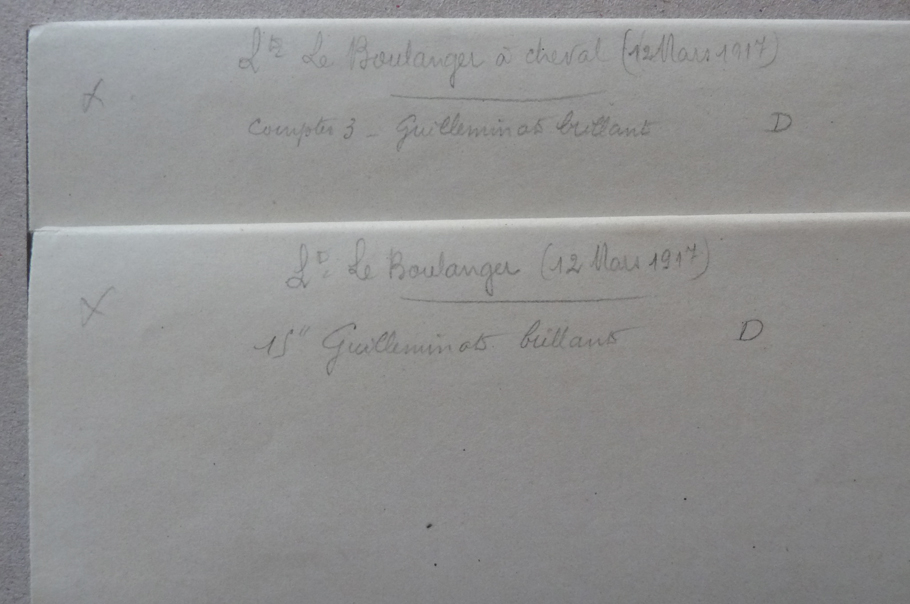 X
Lt Le Boulanger à cheval (12 Mars 1917)
Compter 3 - Guilleminot brillant D
X
Lt Le Boulanger (12 Mars 1917)
15" Guilleminot brillant D